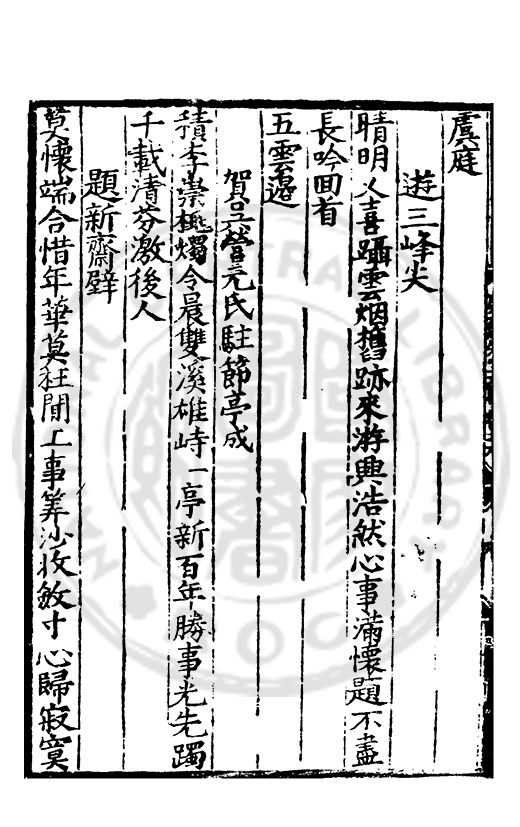 虞庭
遊三峰尖
晴明人喜躡雲烟舊跡來游興浩然心事滿懷題不盡
長吟回首
五雲邊
賀營元氏駐節亭成
積李崇桃燭令晨雙溪雄峙一亭新百年勝事光先躅
千載清芬激後人
題新齋壁
莫懷端合惜年華莫枉閒工事筭沙收斂寸心歸寂寞